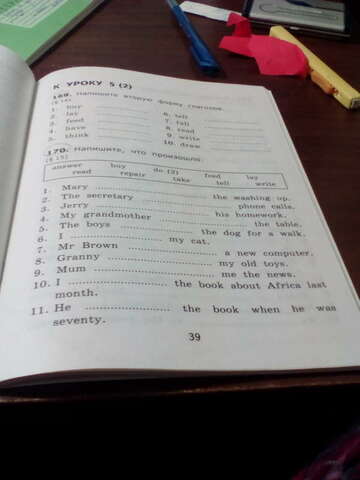 К УРОКУ 5 (2)
169. Напишите вторую форму глаголов.
(§ 15)
1. buy ............ 6. tell ............
2. lay ............ 7. fall ............
3. feed ............ 8. read ............
4. have ............ 9. write ............
5. think ............ 10. draw ............
170. Напишите, что произошло.
(§ 15)
answer buy do (2) feed lay
read repair take tell write
1. Mary ............ the washing up.
2. The secretary ............ phone calls.
3. Jerry ............ his homework.
4. My grandmother ............ the table.
5. The boys ............ the dog for a walk.
6. I ............ my cat.
7. Mr Brown ............ a new computer.
8. Granny ............ my old toys.
9. Mum ............ me the news.
10. I ............ the book about Africa last
month.
11. He ............ the book when he was
seventy.
39